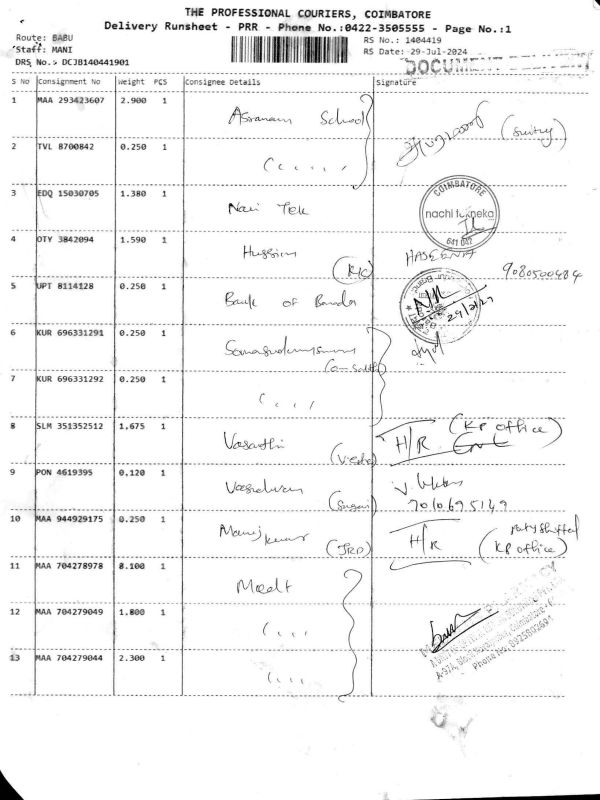 THE PROFESSIONAL COURIERS, COIMBATORE
Delivery Runsheet - PRR - Phone No.:0422-3505555 - Page No.:1
Route: BABU
Staff: MANI
DRS No.: DCJB140441901
RS No.: 1404419
RS Date: 29-Jul-2024
DOCUMENT
S No Consignment No Weight PCS Consignee Details Signature
1 MAA 293423607 2.900 1 School
2 TVL 8700842 0.250 1 ( , , , , ,
3 EDQ 15030705 1.380 1 Navi Tek COIMBATORE 641 042
4 OTY 3842094 1.590 1 Hussain HASEENA
(KK) 9080500484
5 UPT 8114128 0.250 1 Bank of Baroda
6 KUR 696331291 0.250 1
7 KUR 696331292 0.250 1 ( , , ,
8 SLM 351352512 1,675 1 Vasanthi H/R (KP office)
9 PON 4619395 0,120 1 (Sugan) 7010695149
10 MAA 944929175 0.250 1 Manoj kumar (JRD) H/R party shifted (KP office)
11 MAA 704278978 8.100 1
12 MAA 704279049 1,800 1 ( , , ,
13 MAA 704279044 2.300 1 ( , , ,